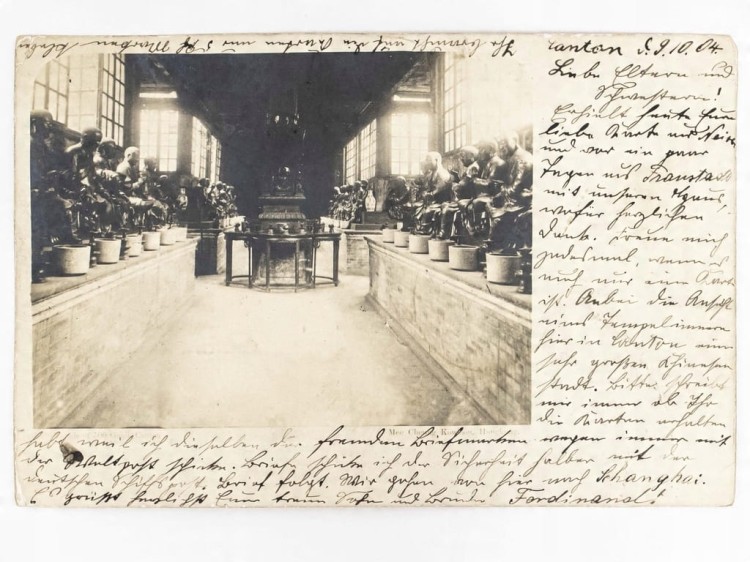 Canton d. 9.10.04.
Liebe Eltern und
Schwestern!
Erhielt heute Eure
liebe Karte aus
und vor ein paar
Tagen aus Fraustadt
mit unserem Haus,
wofür herzlichen
Dank. Freue mich
jedesmal, wenn es
auch nur eine Karte
ist. Anbei die Ansicht
eines Tempelinnern
hier in Canton einer
sehr großen Chinesen
stadt. Bitte schreibt
mir immer ob Ihr
die Karten erhalten
habt, weil ich dieselben der fremden Briefmarken wegen immer mit
der Weltpost schicke. Briefe schicke ich der Sicherheit halber mit der
deutschen Schiffspost. Brief folgt. Wir gehen von hier nach Schanghai.
Es grüßt herzlichst Euer treuer Sohn und Bruder Ferdinand!
Ihr braucht auf die Karten nur 5 Marken